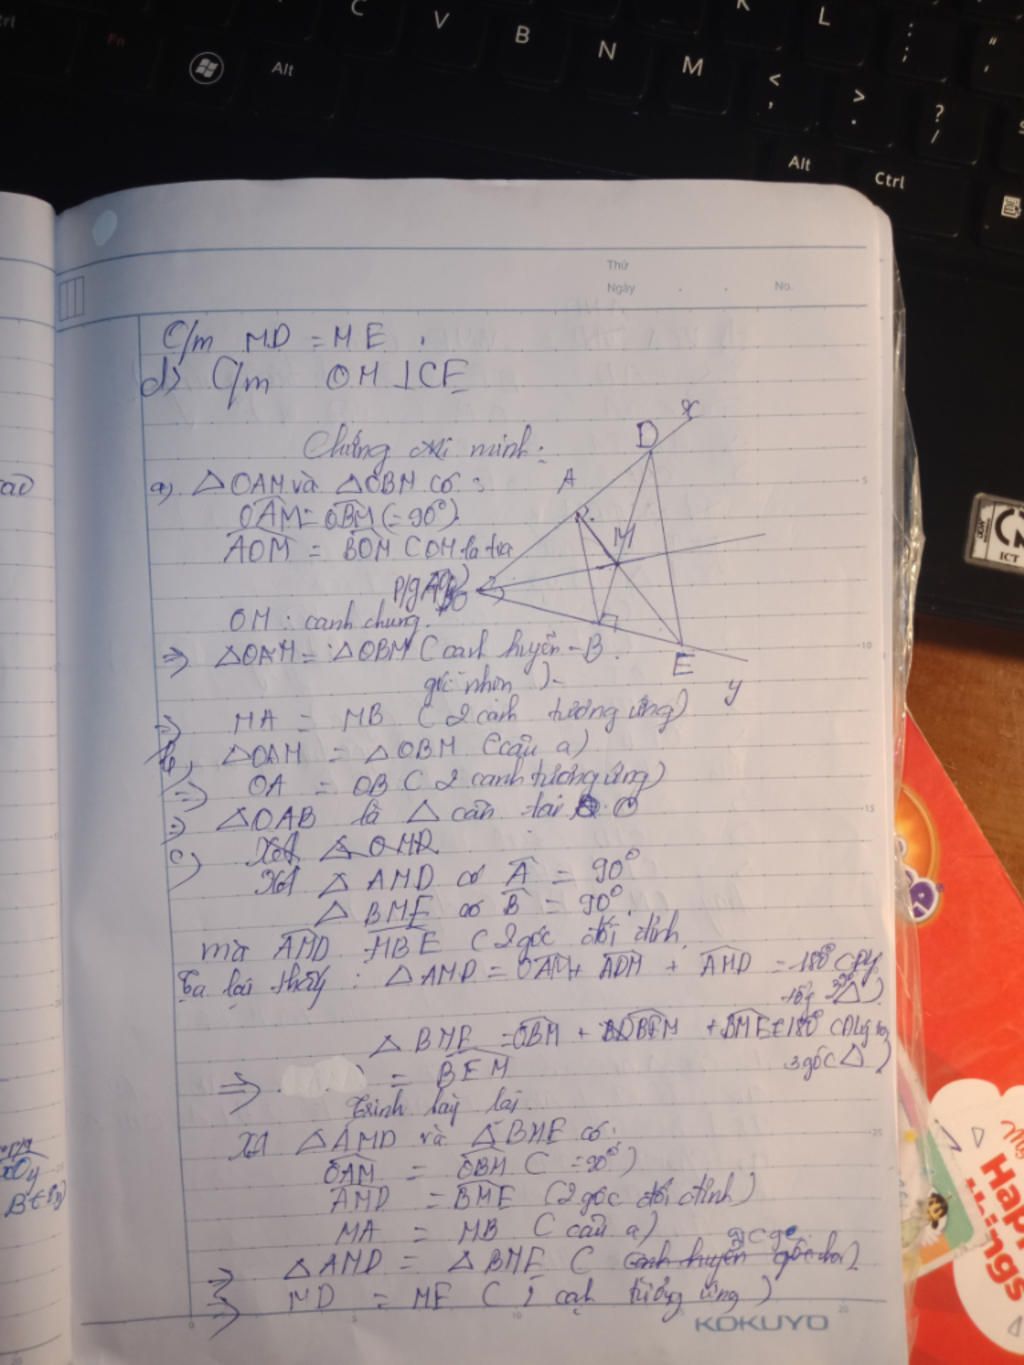 C
V
B
N
M
K
L
:
;
"
'
<
,
>
.
?
/
Fn
Alt
Alt
Ctrl
Thứ
Ngày . . No.
C/m MD = ME .
d) C/m OM ⊥ CE
Chứng minh :
a) △OAM và △OBM có :
OAM = OBM (= 90°)
AOM = BOM ( OM là tia
p/g
OM : cạnh chung.
=> △OAM = △OBM ( cạnh huyền -
góc nhọn )
MA = MB ( 2 cạnh tương ứng)
b, △OAM = △OBM (câu a)
=> OA = OB ( 2 cạnh tương ứng)
=> △OAB là △ cân tại O
c) Xét △OMD
Xét △ AMD có A = 90°
△ BME có B = 90°.
mà AMD MBE ( 2 góc đối đỉnh
Ta lại thấy : △ AMD = OAM + ADM + AMD = 180° ( Đly
tổng 3 △)
△ BME = OBM + BEM + BME = 180° (Đlý
3 góc △)
=> = BEM
Trình bày lại
Xét △AMD và △BME có:
OAM = OBM ( = 90°)
AMD = BME (2 góc đối đỉnh)
MA = MB ( câu a)
=> △AMD = △BME ( cạnh huyền
=> MD = ME ( 2 cạnh tương ứng )
x
D
A
M
O
B
E
y
5
10
15
25
0
5
10
20
KOKUYO
ICT
Happ
things